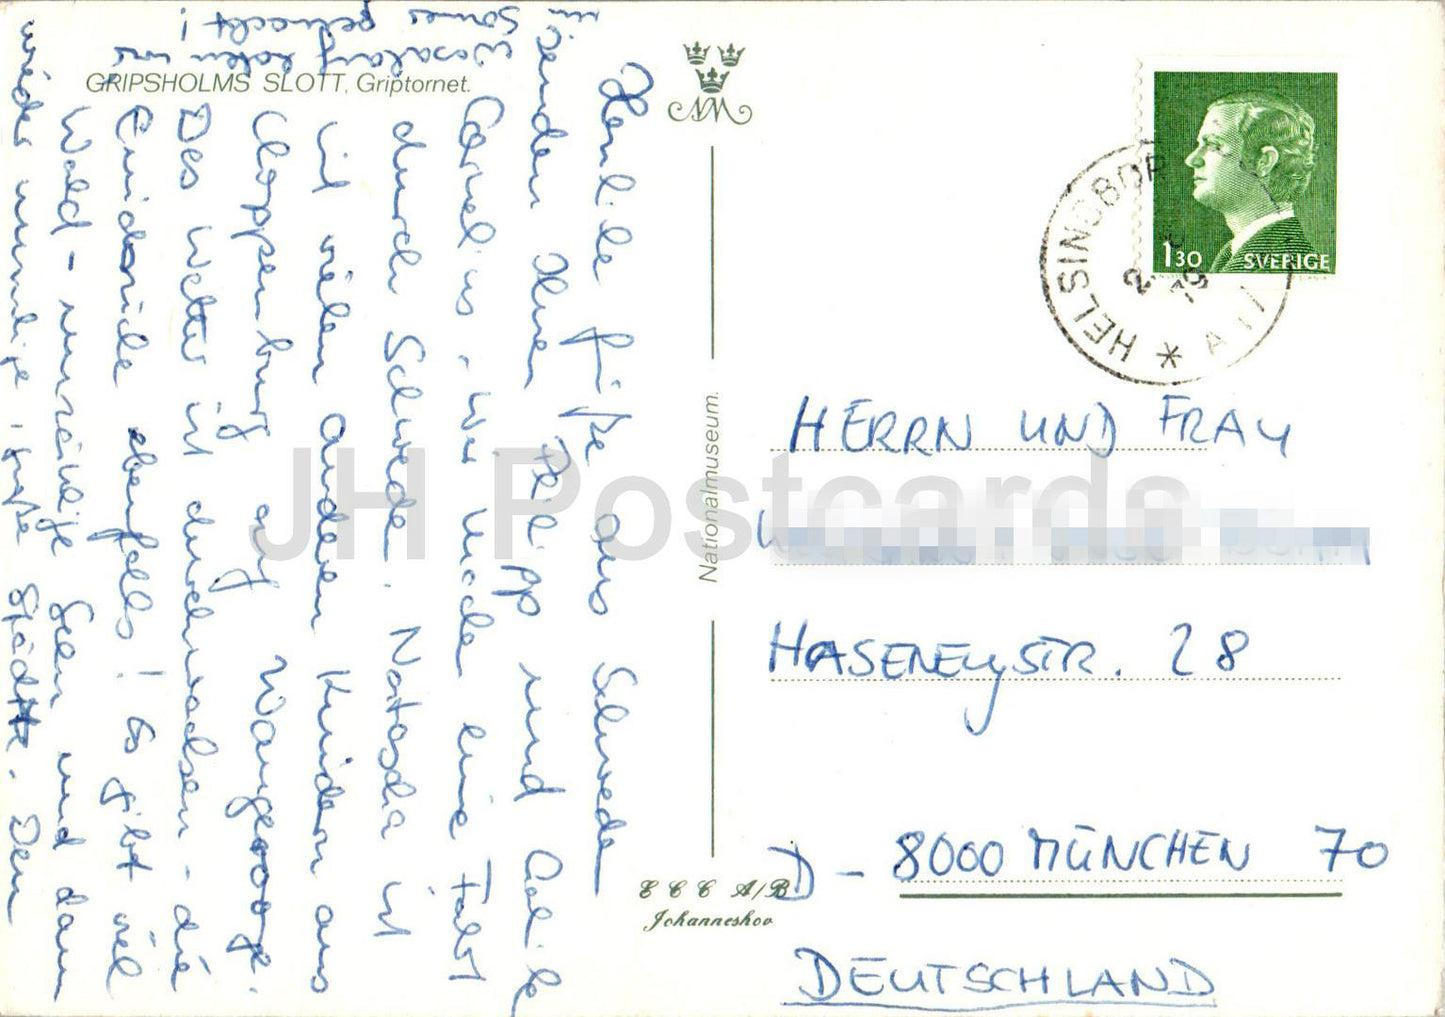 GRIPSHOLMS SLOTT, Griptornet.
NM
Herzliche Grüße aus Schweden
senden Ihnen Philipp und
Cornelius. Wir machen eine Fahrt
durch Schweden. Natascha ist
mit vielen anderen Kindern aus
Cloppenburg auf Wangerooge.
Das Wetter ist durchwachsen - die
Eindrücke ebenfalls! Es gibt viel
Wald - unzählige Seen und dann
wieder unruhige, große Städte. Den
haben wir
gemacht!
Nationalmuseum.
ECC A/B
Johanneshov
HELSINGBOR
1 30 SVERIGE
HERRN UND FRAU
HASENEYSTR. 28
D - 8000 MÜNCHEN 70
DEUTSCHLAND
JH Postcards